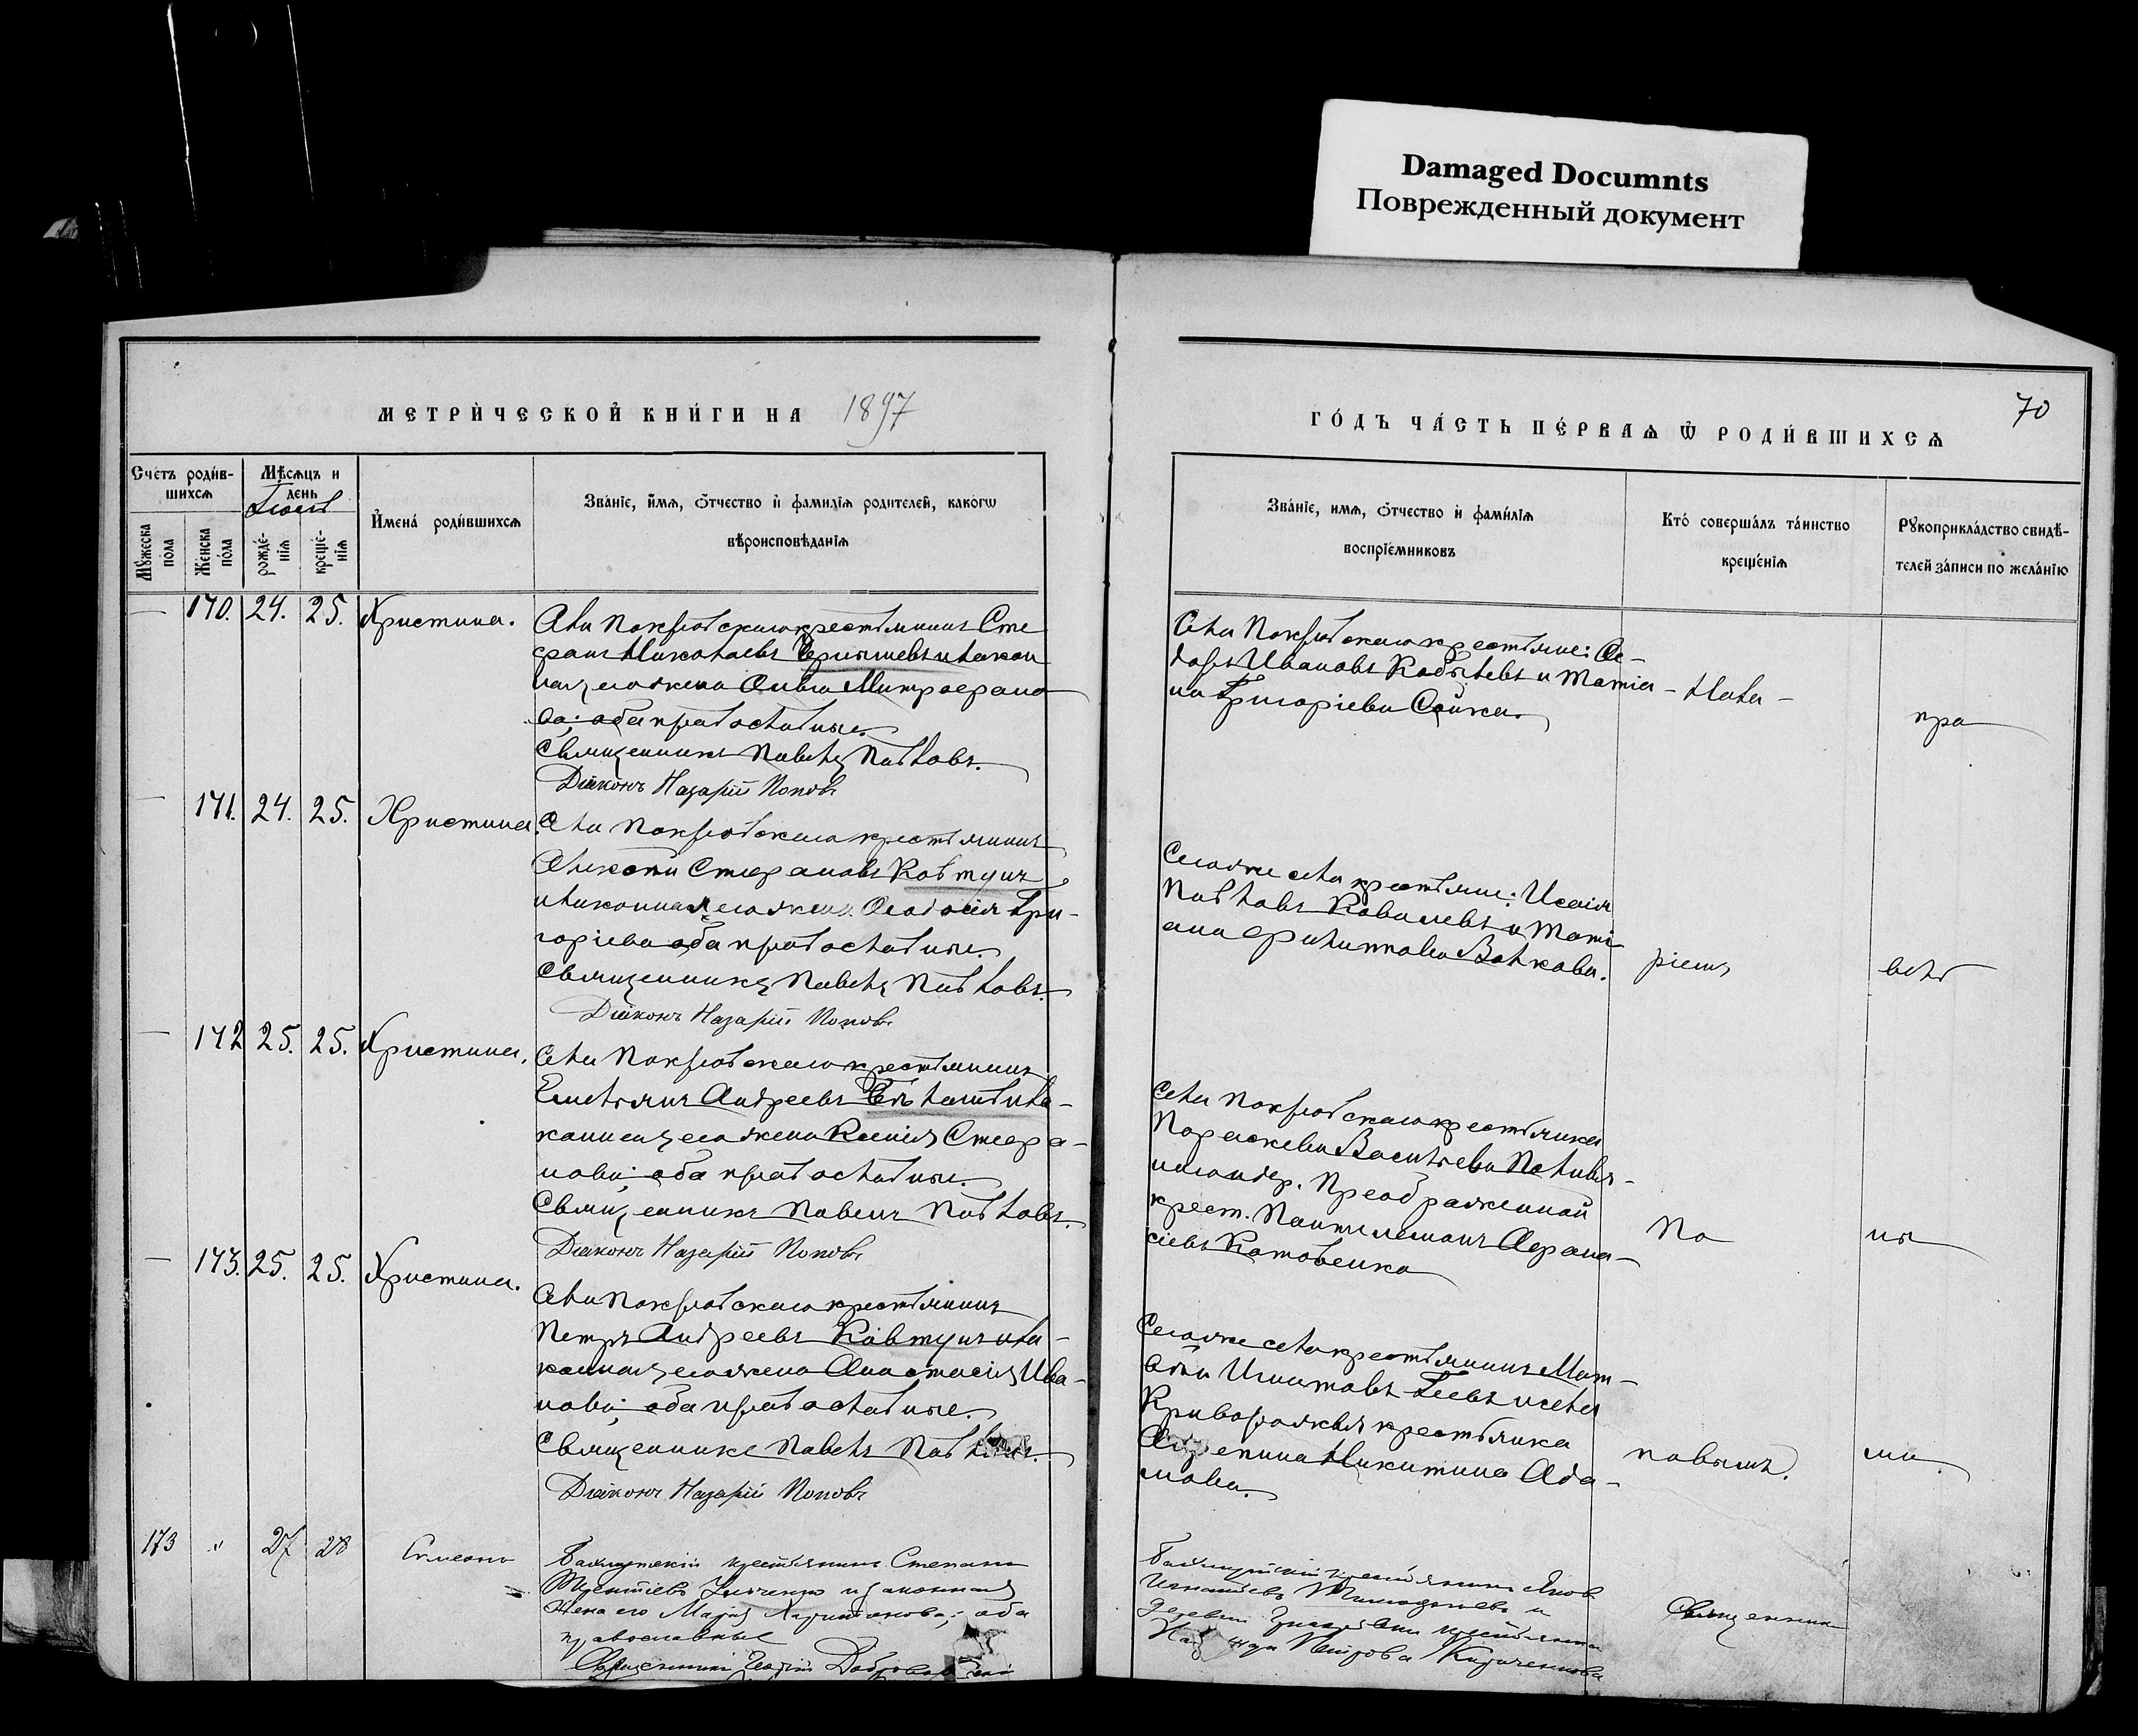 Damaged Documnts
Поврежденный документ
МЕТРИ́ЧЕСКОЙ КНИ́ГИ НА 1897
ГО́ДЪ ЧА́СТЬ ПЕ́РВАѦ Ѿ РОДИ́ВШИХСѦ
70
Сче́тъ роди́в-
шихсѧ
Мѣсѧцъ и
день
Мꙋжеска
по́ла
Же́нска
по́ла
рожде́-
нїѧ
креще́-
нїѧ
И҆мена̀ роди́вшихсѧ
Зва́нїе, и҆́мѧ, ѻ҆́тчество и҆ фамилїѧ родителей, како́гѡ
вѣроисповѣ́данїѧ
Зва́нїе, имѧ, ѻ҆́тчество и҆ фами́лїѧ
воспрїе́мниковъ
Кто̀ соверша́лъ та́инство
креще́нїѧ
Рꙋкоприкла́дство свидѣ́-
телей за́писи по жела́нїю
— 170. 24. 25. Христина.
Села Покровскаго крестьянинъ Сте
фанъ Николаевъ Чернышевъ и закон
ная его жена Анна Митрофано
ва; оба православные.
Священникъ Павелъ Павловъ.
Діаконъ Назарій Поповъ
Села Покровскаго крестьяне:
Ивановъ Кобылевъ и Татіа
на Григоріева Сойка.
— Нака —
пра
— 171. 24. 25. Христина.
Села Покровскаго крестьянинъ
Алексѣй Стефановъ Ковтунъ
и законная его жена Феодосія Гри-
горіева оба православные.
Священникъ Павелъ Павловъ.
Діаконъ Назарій Поповъ
Того же села крестьяне: Исаія
Павловъ Ковалевъ и Таті
ана Филиппова Волкова.
ріемъ
вслѣ
— 172 25. 25. Христина.
Села Покровскаго крестьянинъ
Емельянъ Андреевъ и за-
конная его жена Ксенія Стефа-
нова; оба православные.
Священникъ Павелъ Павловъ.
Діаконъ Назарій Поповъ
Села Покровскаго крестьянка
Параскева Васильева
дер. Преображенной
крест. Пантелеймонъ Афана-
сіевъ Котовенко
По
ны
— 173. 25. 25. Христина.
Села Покровскаго крестьянинъ
Петръ Андреевъ Ковтунъ и за-
конная его жена Анастасія Ива-
нова; оба православные.
Священникъ Павелъ Павловъ.
Діаконъ Назарій Поповъ
Того же села крестьянинъ Мат-
вѣй Игнатовъ Гаевъ и села
Криворожья крестьянка
Агрепина Никитина Ада-
мова.
повымъ.
ми
173 " 27 28 Симеонъ
Бахмутскій крестьянинъ Степанъ
и законная
жена его Марія Харитонова; оба
православные
Священникъ Георгій
Бахмутскій крестьянинъ Яковъ
Игнатьевъ и
деревни крестьянка
Петрова Кириченкова
Священник